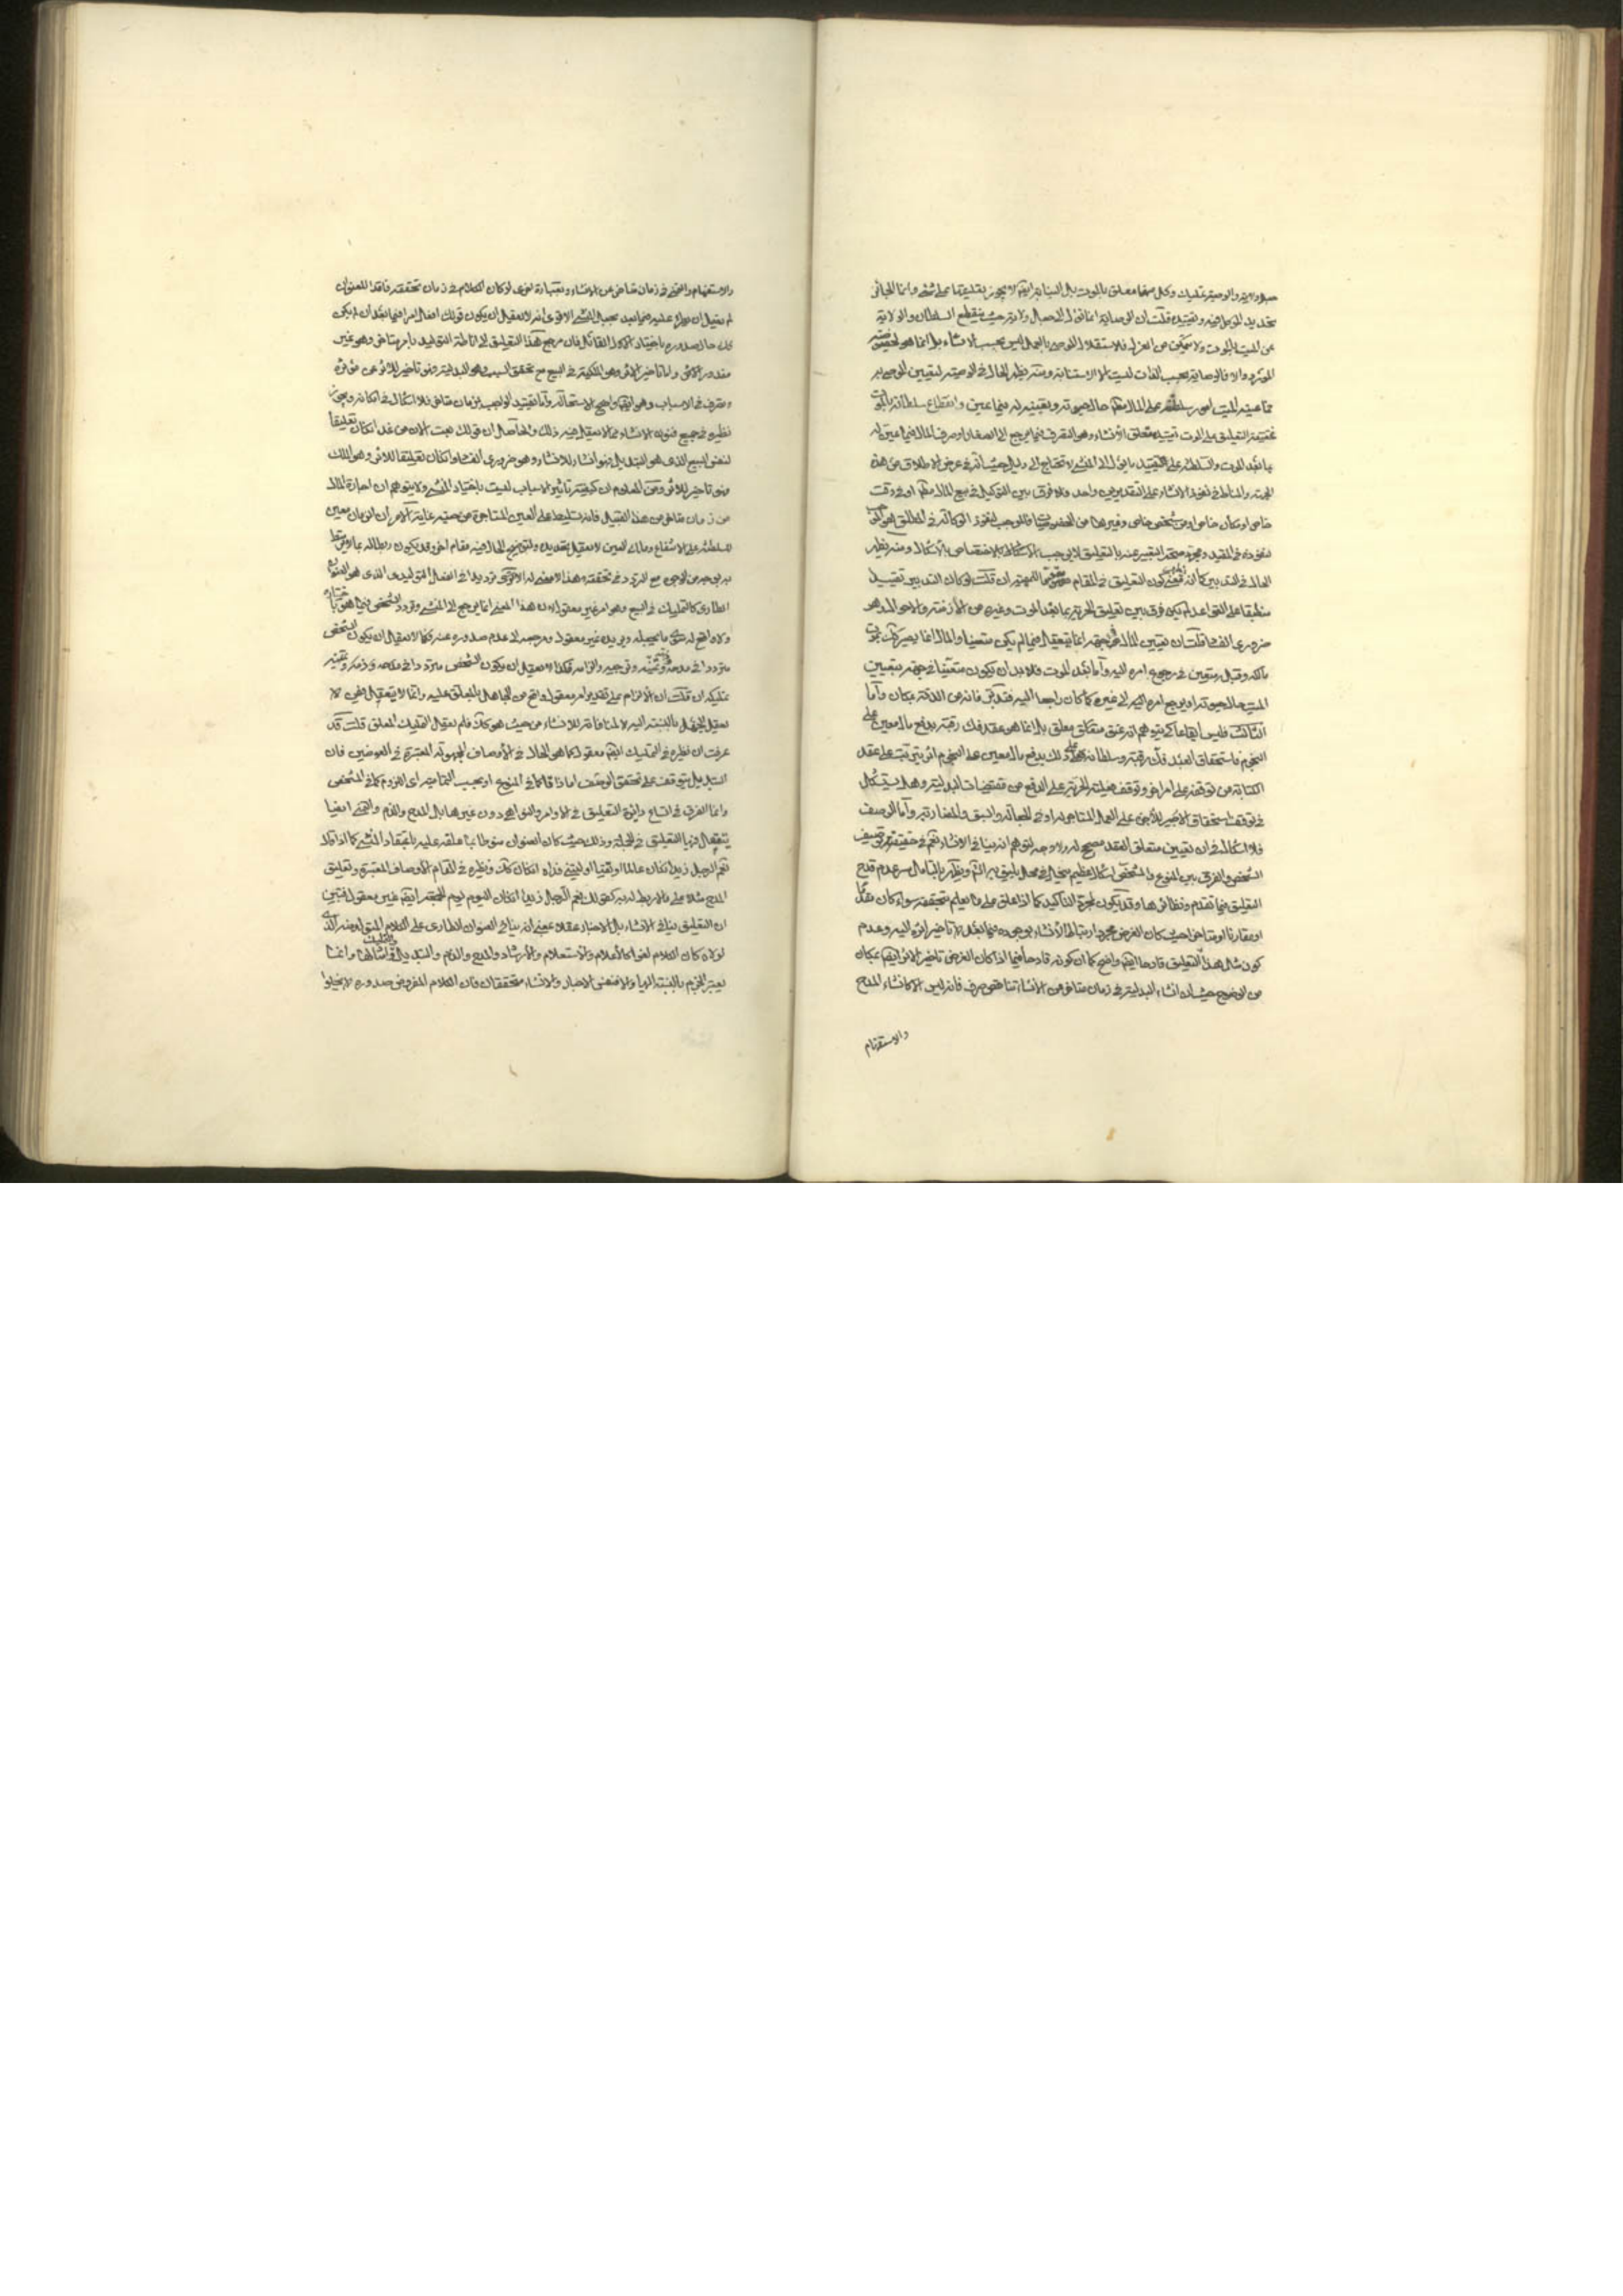 جعل ولاية والوصية تمليك وكل منهما معلق بالموت بل النيابة ايضا لا يجوز تعليقها على شئ وانما الجائز
تحديد المتعلق فيه وتقييده قلت ان الوصاية انما تؤل الى جعل ولاية حيث ينقطع السلطان والولاية
عن الميت بالموت ولا يتمكن من العزل فالاستقلال للوصي بالعمل ليس بحسب الانشاء بل انما هو
المورد والا فالوصاية بحسب الذات ليست الا الاستنابة ومنه يظهر الحال في الوصية لتعيين الموصى به
مما عينه الميت اثر سلطنته على المال حال حيوته وتعيينه له فيما عين وانقطاع سلطانه بالموت
فحقيقة التعليق على الموت تقييد متعلق الانشاء وهو التصرف فيما يرجع الى الصغار او صرف المال فيما عين له
بما بعد الموت والسلطنة على التقييد بما يؤل الى المنشئ لا تحتاج الى دليل حيث انه في عرض الاطلاق من هذه
الجهة والمناط في نفوذ الانشاء على التقديرين واحد ولا فرق بين التوكيل في بيع المال او في وقت
خاص او مكان خاص او من شخص خاص وغيرها من الخصوصيات فالموجب لنفوذ الوكالة في المطلق هو الموجب
لنفوذه في المقيد ومجرد صحة التعبير عنه بالتعليق لا يوجب الاشكال بالاختصاص بالاشكال ومنه يظهر
الحال في التدبير كما انه كون التعليق في المقام التدبير ان قلت لو كان التدبير تقييدا
منطبقا على القواعد لم يكن فرق بين تعليق الحرية بما بعد الموت وغيره من الازمنة والاحوال وهو
ضروري الفساد قلت ان تعيين المال في جهة انما يتعقل فيما لم يكن متعينا والمال انما يصير كذلك بموت
مالكه وقبله يتعين في رجوع امره اليه واما بعد الموت فلا بد ان يكون متعينا في جهة بتعيين
الميت حال حيوته او يرجع امره اليه الى غيره كما كان راجعا اليه فتدبر فانه من الدقة بمكان واما
الثالث فليس ايقاعا كي يتوهم انه عتق معلق بل انما هو عقد فك رقبة بدفع مال معين على
النجوم فاستحقاق العبد فك رقبته وسلطانه على ذلك بدفع مال معين على النجوم اثر يترتب على عقد
الكتابة من توقفه على امر اخر وتوقف فعلية الحرية على الدفع من مقتضيات البدلية وهل يستشكل
في توقف استحقاق الاجير للاجرة على العمل المستاجر له او في الجعالة والسبق والمضاربة واما الوصف
فلا اشكال في ان تعيين متعلق العقد مصحح له ولا وجه لتوهم انه ينافي الانشاء نعم في حقيقة توصيف
الشخص والفرق بين النوع والشخص اشكال عظيم سيأتي في محل يليق به انشاء ويظهر بالتأمل سر عدم قدح
التعليق فيما تقدم ونظائرها وقد يكون لمجرد التاكيد كما اذا علق على ما يعلم بتحققه سواء كان
او مقارنا او متاخرا حيث كان الغرض مجرد ارتباط الانشاء بوجوده فيما بعد لا تاخير اثره اليه وعدم
كون مثل هذا التعليق قادحا ايضا واضح كما ان كونه قادحا فيما اذا كان الغرض تاخير الاثر ايضا بمكان
من الوضوح حيث ان انشاء البدلية في زمان متاخر من الانشاء تناقض صرف فانه ليس الا كانشاء المدح
والاستفهام
والاستفهام والتمني في زمان متاخر عن الانشاء وبعبارة اخرى لو كان الكلام في زمان تحققه فاقدا للعنوان
لم يعقل ان يطرء عليه فيما بعد بجعل المنشئ الا ترى انه لا يعقل ان يكون قولك افعل امرا فيما بعد ان لم يكن
كك حال صدوره باختيار القائل فان مرجع هذا التعليق الى اناطة التوليد بامر متاخر وهو غير
مقدور للمنشئ واما تاخير الاثر وهو الملكية في البيع مع تحقق السبب وهو البدلية فهو تاخير للاثر عن مؤثره
وتصرف في الاسباب وهو ايضا واضح الاستحالة واما تقييد الواجب بزمان متاخر فلا اشكال في امكانه
نظيره في جميع فنون الانشاء مما لا يعقل فيه ذلك والحاصل ان قولك بعت الان من غد ان كان تعليقا
لنفس البيع الذي هو التبديل فهو انشاء للانشاء وهو ضروري الفساد وان كان تعليقا للاثر وهو الملك
فهو تاخير للاثر ومن المعلوم ان كيفية تاثير الاسباب ليست باختيار المنشئ ولا يتوهم ان اجارة المال
من زمان متاخر من هذا القبيل فانه تسليط على العين المستاجرة من حينه غاية الامر ان الزمان معين
للسلطنة على الانتفاع وملك العين لا يعقل تقديره ولتوضيح الحال فيه مقام اخر وقد يكون ربطا له بما لا يرتبط
به بوجه من الوجوه مع التردد في تحققه وهذا لا معنى له الا ترديدا في الفعل التوليدي الذي هو العنوان
الطاري كالتمليك في البيع وهو امر غير معقول لان هذا المعنى انما يرجع الى المنشئ وتردد الشخص فيما هو باختياره
ولا واقع له سوى ما يجعله ويريده غير معقول ومرجعه الى عدم صدوره عنه فكما لا يعقل ان يكون الشخص
مترددا في مدحه وتمنيه وترجيه والزامه فكذا لا يعقل ان يكون الشخص مترددا في نكاحه وذمه وتمنيه
تمليكه ان قلت ان الالزام على تقدير امر معقول واقع من الجاهل بالمعلق عليه وانما لا يتعقل فيمن لا
يعقل الجهل بالنسبة اليه لا لمنافاته للانشاء من حيث هو كذلك فلم يعقل التمليك المعلق قلت قد
عرفت ان نظيره في التمليك ايضا معقول كما هو الحال في الاوصاف المجهولة المعتبرة في العوضين فان
التبديل يتوقف على تحقق الوصف اما ذاتا كما في النوع او بحسب التمامية اي اللزوم كما في الشخص
وانما الفرق في اتساع دائرة التعليق في الاوامر والنواهي دون غيرها بل المدح والذم والتمني ايضا
يتعقل فيها التعليق في الجملة وذلك حيث كان العنوان منوطا بما علقه عليه باعتقاد المنشئ كما اذا قلت
نعم الرجل زيد ان كان عالما او تقيا او ليتني فداه ان كان كذلك ونظيره في المقام الاوصاف المعتبرة وتعليق
المدح مثلا على ما لا ربط له به كقولك نعم الرجل زيد ان كان اليوم يوم الجمعة ايضا غير معقول فتبين
ان التعليق ينافي الانشاء بل الاخبار عقلا بمعنى انه ينافي العنوان الطاري على الكلام المتولد منه الذي
لولاه كان الكلام لغوا كالاعلام والاستعلام والارشاد والمدح والذم والتبديل والتمليك وامثالها وانما
يعتبر الجزم بالنسبة اليها والا فنفس الاخبار والانشاء متحققان فان الكلام المفروض صدوره لا يخلو